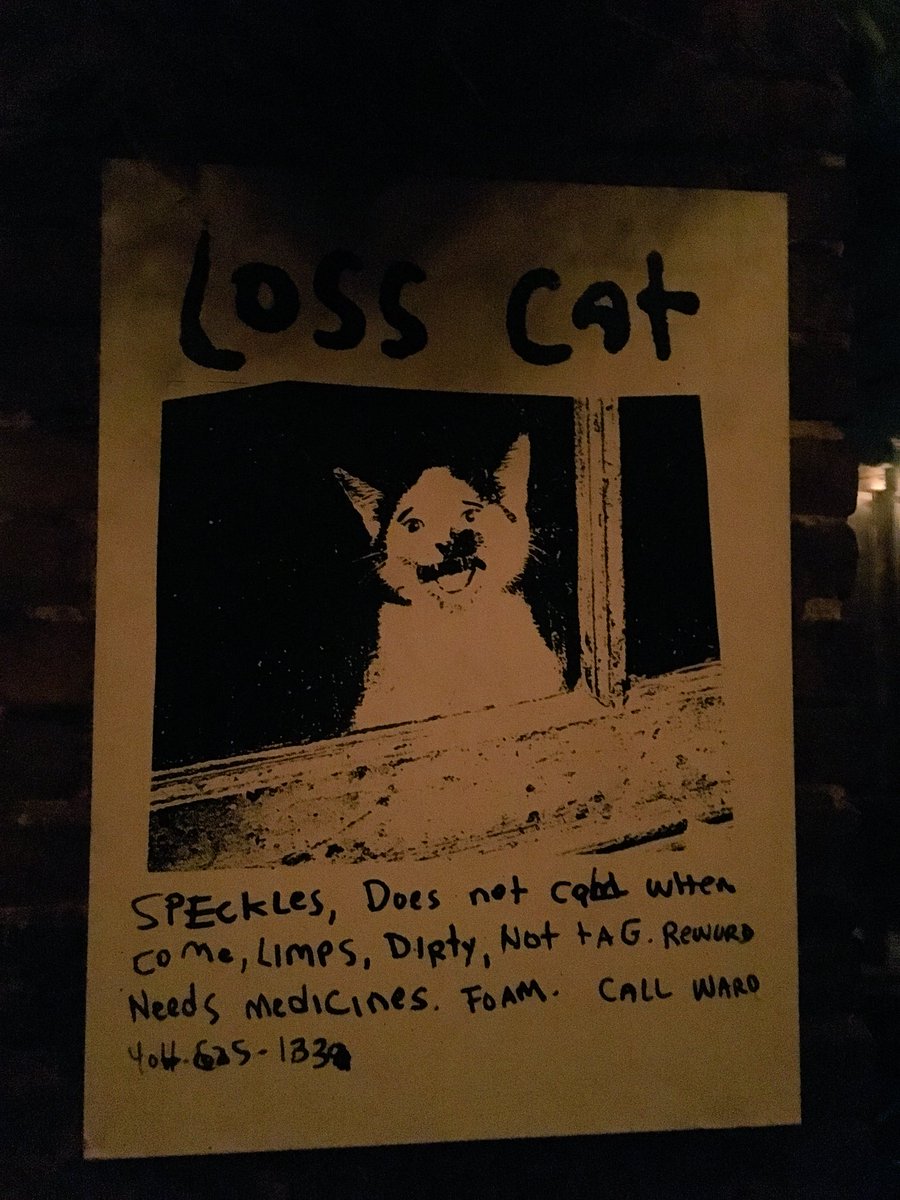 Loss Cat
SPEckLes, Does not when
come, LIMPS, DIRty, Not tAG. REWURD
Needs medicines. FOAM. CALL WARD